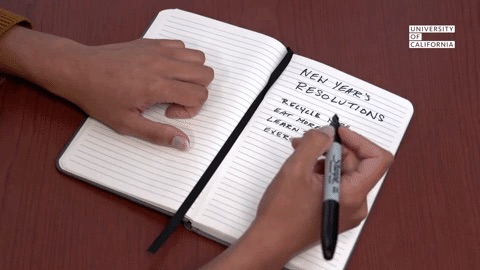 UNIVERSITY
OF
CALIFORNIA
NEW YEAR'S
RESOLUTIONS
RECYCLE
EAT MORE
LEARN